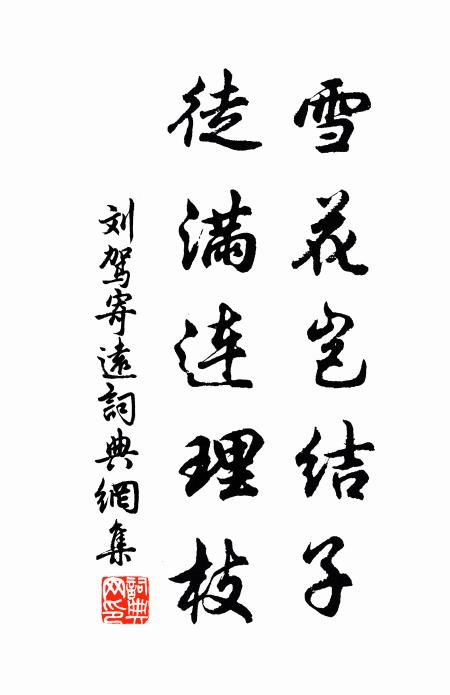 雪花岂结子
徒满连理枝
刘驾寄遠詞典網集
詞典网印